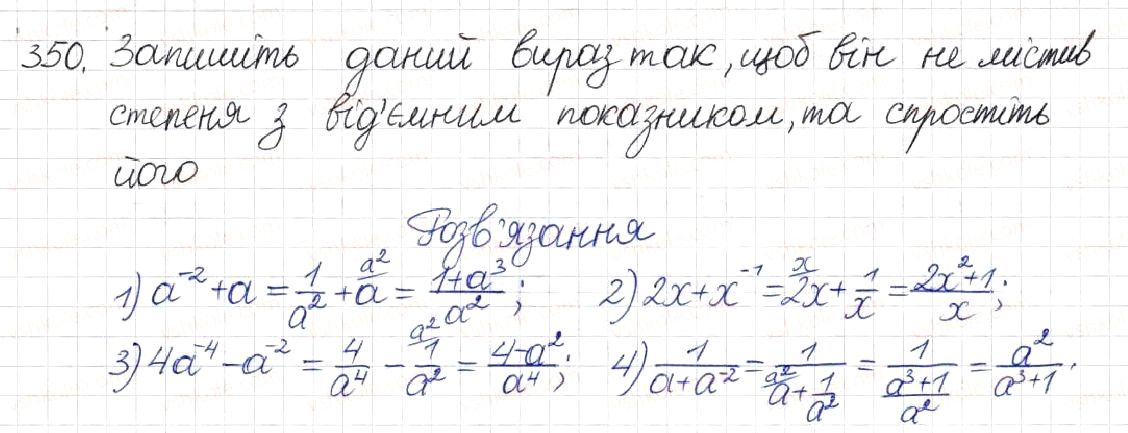 350. Запишіть даний вираз так, щоб він не містив
степеня з від'ємним показником, та спростіть
його
Розв'язання
1) a⁻² + a = 1/a² + a^{\a²} = (1+a³)/a²; 2) 2x + x⁻¹ = 2x^{\x} + 1/x = (2x²+1)/x;
3) 4a⁻⁴ - a⁻² = 4/a⁴ - 1/a²^{\a²} = (4-a²)/a⁴; 4) 1/(a+a⁻²) = 1/(a^{\a²} + 1/a²) = 1/((a³+1)/a²) = a²/(a³+1).